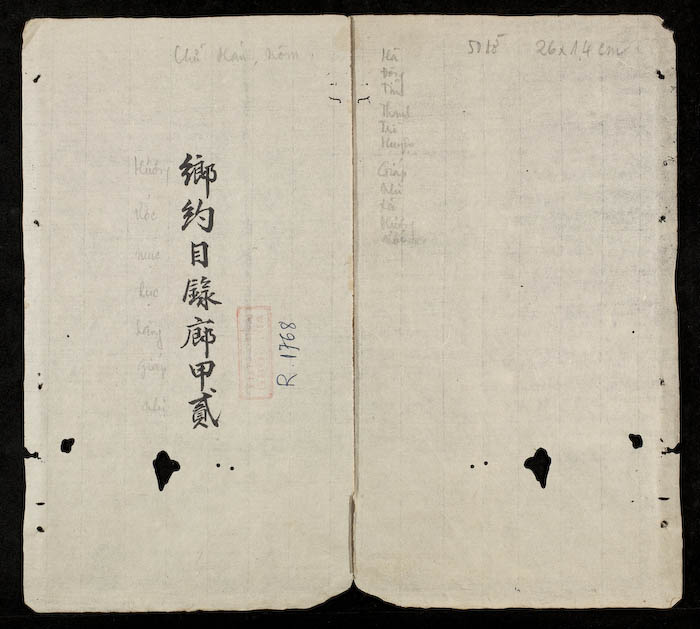 Chữ Hán, Nôm.
鄉約目錄廊甲貳
Hương
ước
mục
lục
làng
Giáp
nhị
R. 1768
50 tờ 26 x 14 cm
Hà
Đông
Tỉnh
Thanh
Trì
Huyện
Giáp
nhị